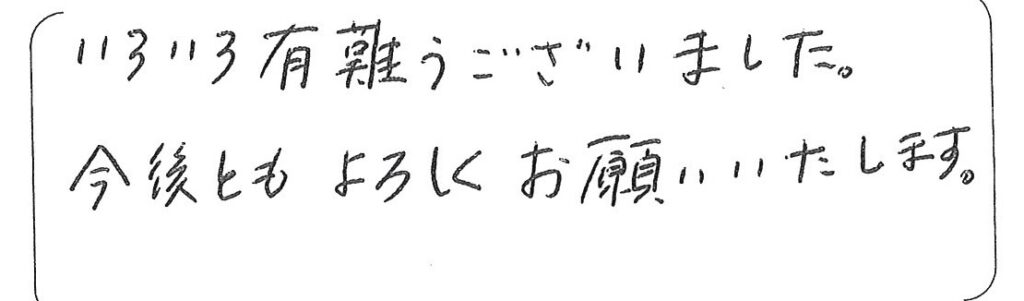 いろいろ有難うございました。
今後ともよろしくお願いいたします。